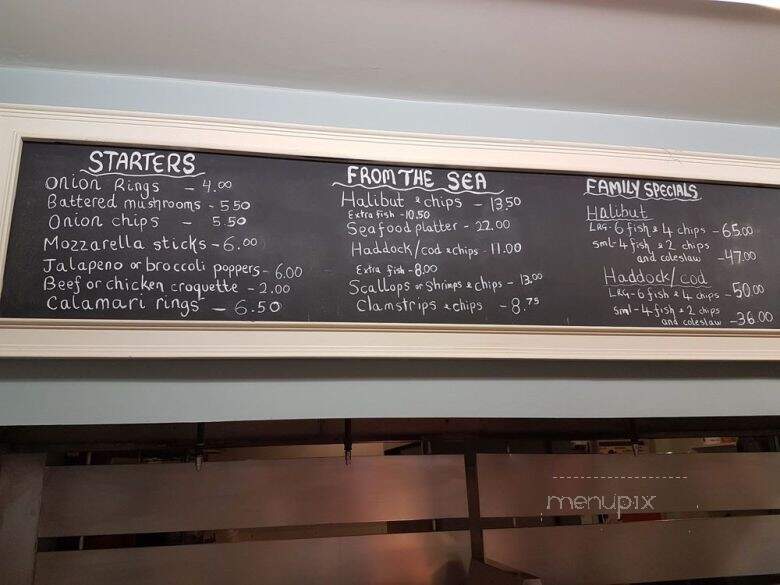 STARTERS
Onion Rings - 4.00
Battered mushrooms - 5.50
Onion chips - 5.50
Mozzarella sticks - 6.00
Jalapeno or broccoli poppers - 6.00
Beef or chicken croquette - 2.00
Calamari rings - 6.50
FROM THE SEA
Halibut & chips - 13.50
Extra fish - 10.50
Seafood platter - 22.00
Haddock/cod & chips - 11.00
Extra fish - 8.00
Scallops or Shrimps & chips - 13.00
Clamstrips & chips - 8.75
FAMILY SPECIALS
Halibut
LRG - 6 fish & 4 chips - 65.00
sml - 4 fish & 2 chips
and coleslaw - 47.00
Haddock/cod
LRG - 6 fish & 4 chips - 50.00
sml - 4 fish & 2 chips
and coleslaw - 36.00
menupix